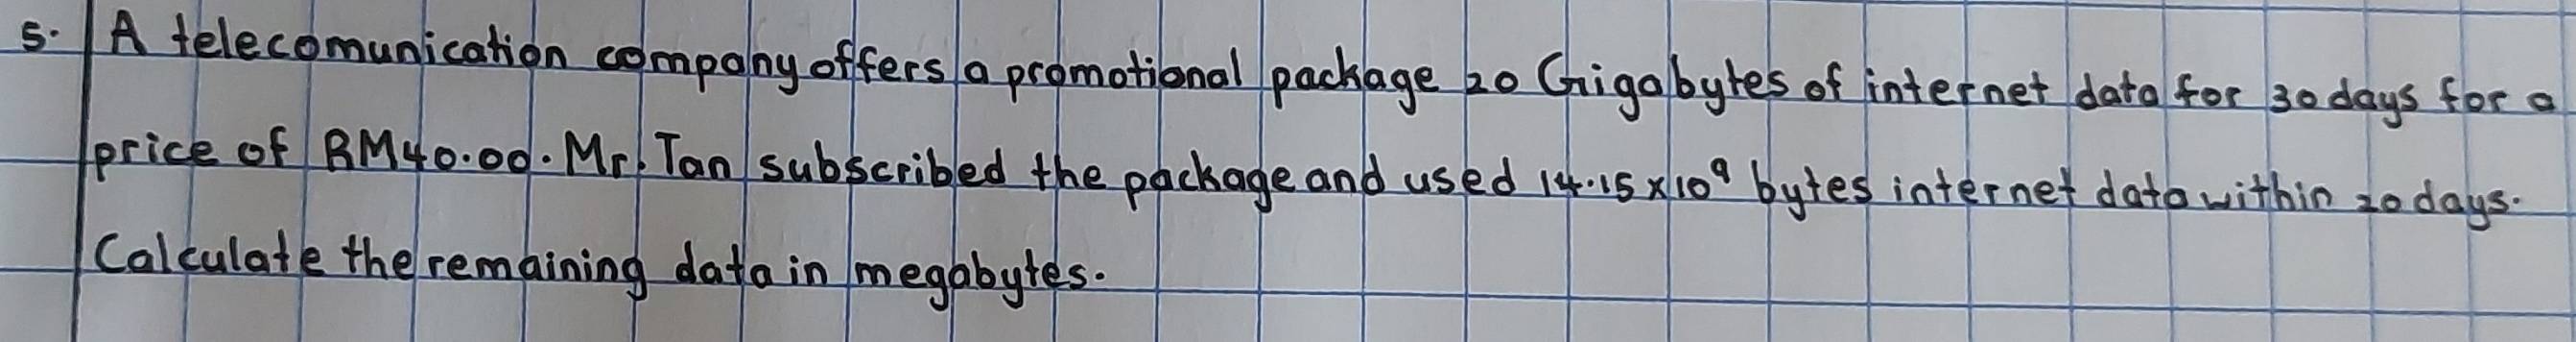 5. A telecomunication company offers a promotional package 20 Gigabytes of internet data for 30 days for a
price of RM40.00. Mr. Tan subscribed the package and used 14.15 x 10⁹ bytes internet data within 20 days.
Calculate the remaining data in megabytes.